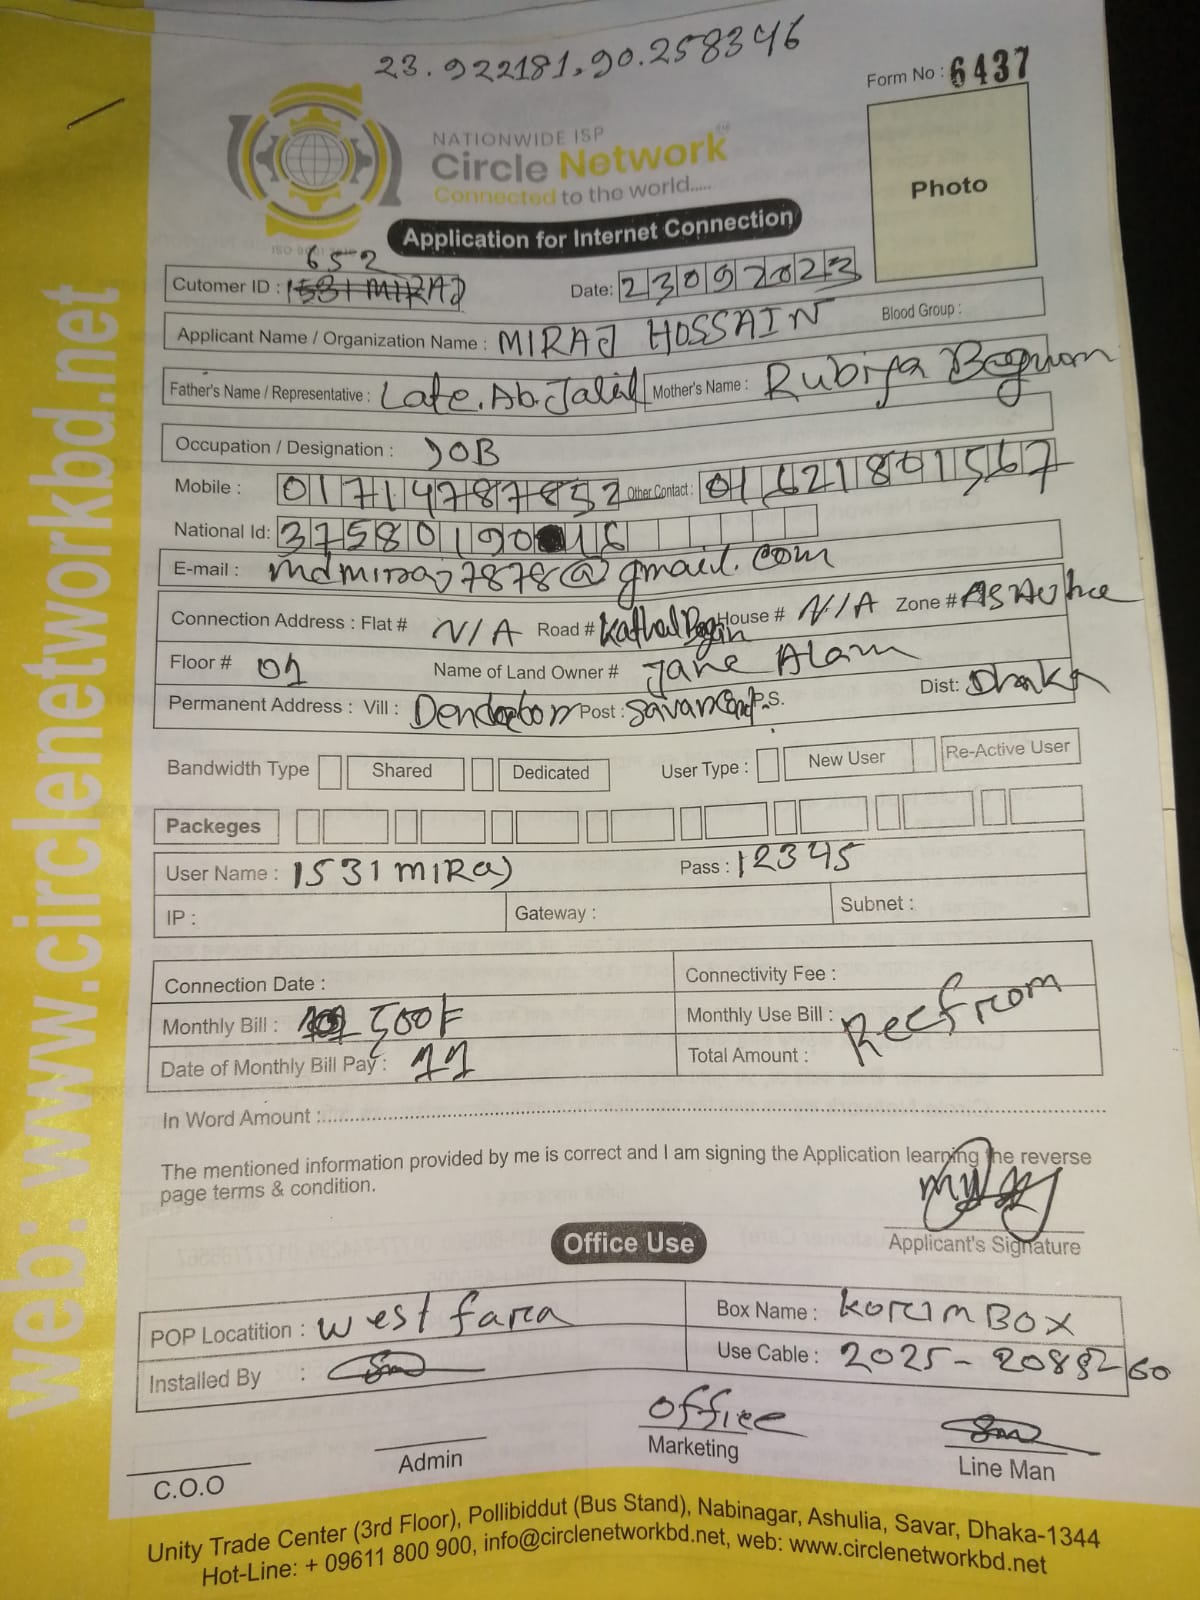 23.922181,90.258346
Form No : 6437
NATIONWIDE ISP
Circle Network
Connected to the world.....
Photo
Application for Internet Connection
652
Cutomer ID : 1531 MIRAJ Date: 23092023
Applicant Name / Organization Name : MIRAJ HOSSAIN Blood Group :
Father's Name / Representative : Late. Ab. Jalil Mother's Name : Rubiya Begum
Occupation / Designation : JOB
Mobile : 01714787852 Other Contact : 01621801567
National Id: 37580190 16
E-mail : mdmiraj7878@gmail.com
Connection Address : Flat # N/A Road # Kathal Bagan House # N/A Zone # Ashulia
Floor # 01 Name of Land Owner # Jane Alam
Permanent Address : Vill : Post : Savar Cant P.S. Dist: Dhaka
Bandwidth Type Shared Dedicated User Type : New User Re-Active User
Packeges
User Name : 1531 MIRaj Pass : 12345
IP : Gateway : Subnet :
Connection Date : Connectivity Fee :
Monthly Bill : 500 Monthly Use Bill :
Date of Monthly Bill Pay : 11 Total Amount :
In Word Amount :
The mentioned information provided by me is correct and I am signing the Application learning the reverse
page terms & condition.
Applicant's Signature
Office Use
POP Locatition : west Box Name : KORIM BOX
Installed By : Use Cable : 2025-
office
C.O.O Admin Marketing Line Man
Unity Trade Center (3rd Floor), Pollibiddut (Bus Stand), Nabinagar, Ashulia, Savar, Dhaka-1344
Hot-Line: + 09611 800 900, info@circlenetworkbd.net, web: www.circlenetworkbd.net
web: www.circlenetworkbd.net